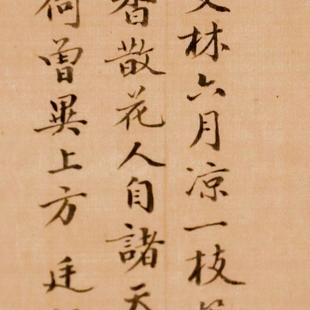 林六月凉一枝
香散花人自諸天
何曾異上方廷